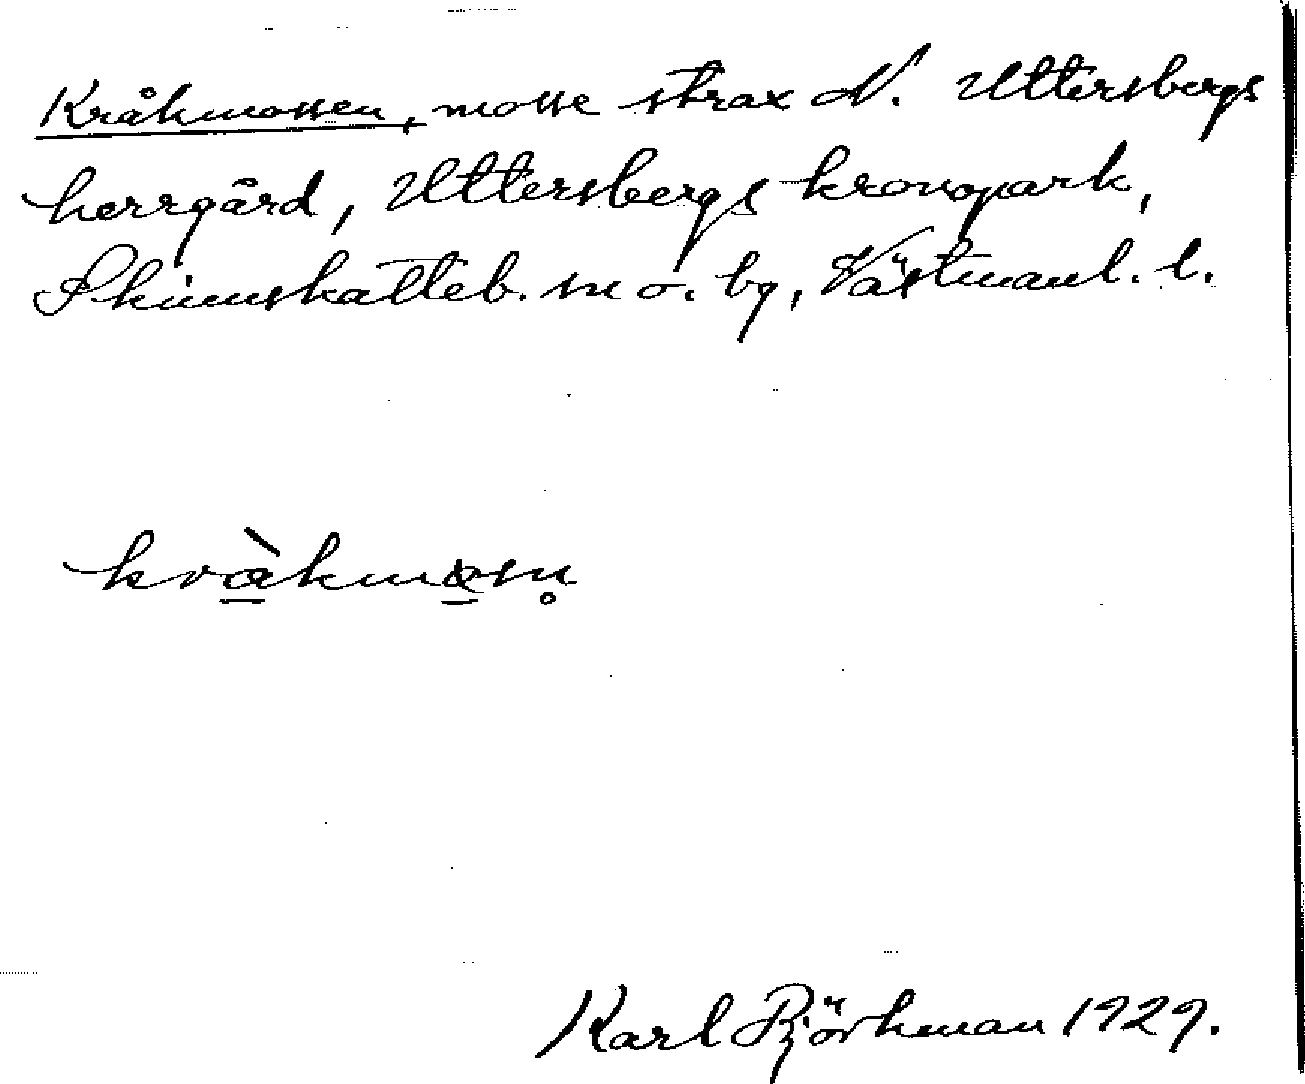 Kråkmossen, mosse strax N. Uttersbergs
herrgård, Uttersbergs kronopark,
Skinnskatteb. sn o. bg, Västmanl. l.
kràkmosn̥
Karl Björkman 1929.